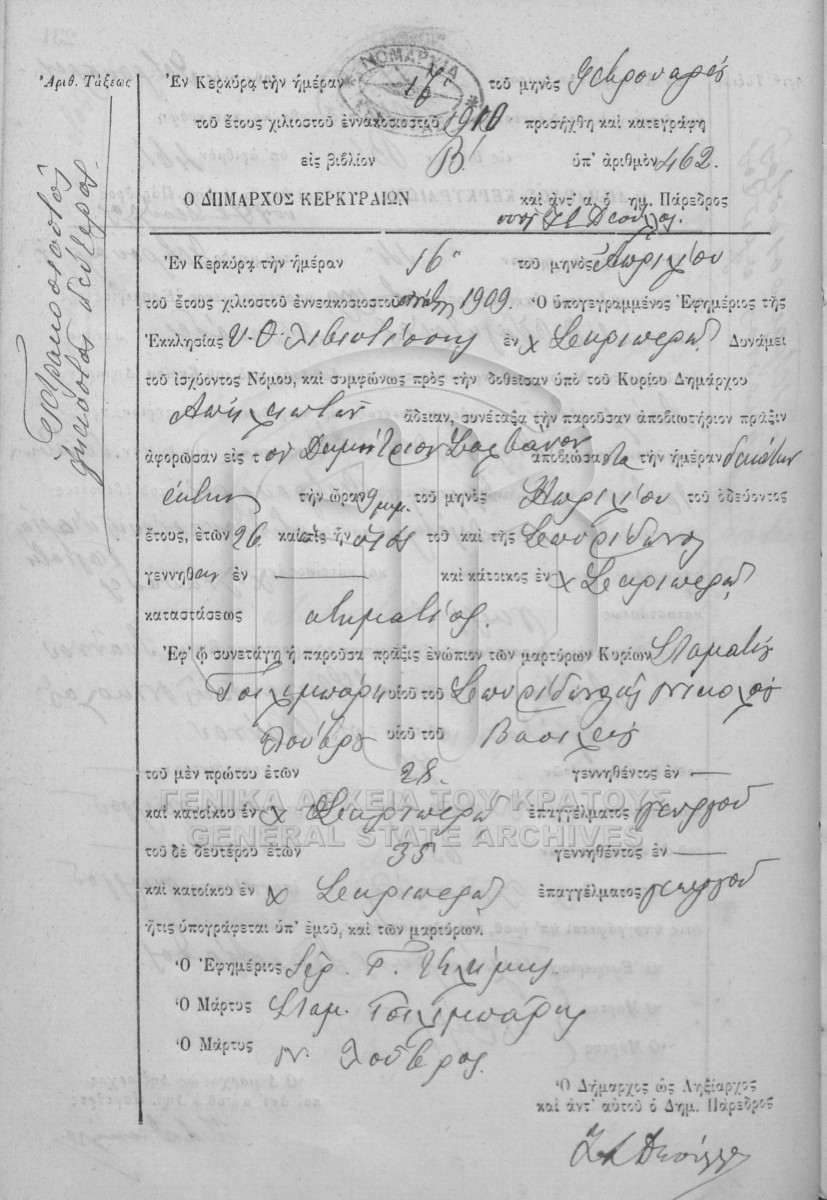 Ἀριθ. Τάξεως
Τετρακοσιοστὸς
ἑξηκοστὸς δεύτερος
ΝΟΜΑΡΧΙΑ
Ἐν Κερκύρᾳ τὴν ἡμέραν 16 τοῦ μηνὸς Φεβρουαρίου
τοῦ ἔτους χιλιοστοῦ ἐννακοσιοστοῦ 1910 προσήχθη καὶ κατεγράφη
εἰς βιβλίον Β! ὑπ' ἀριθμὸν 462.
Ο ΔΗΜΑΡΧΟΣ ΚΕΡΚΥΡΑΙΩΝ καὶ ἀντ' α. ὁ δημ. Πάρεδρος
Ἐν Κερκύρᾳ τὴν ἡμέραν 16η τοῦ μηνὸς Ἀπριλίου
τοῦ ἔτους χιλιοστοῦ ἐννεακοσιοστοῦ ἐνάτου 1909. Ὁ ὑπογεγραμμένος Ἐφημέριος τῆς
Ἐκκλησίας Υ. Θ. ἐν χ Σκριπερῷ Δυνάμει
τοῦ ἰσχύοντος Νόμου, καὶ συμφώνως πρὸς τὴν δοθεῖσαν ὑπὸ τοῦ Κυρίου Δημάρχου
ἄδειαν, συνέταξα τὴν παροῦσαν ἀποβιωτήριον πρᾶξιν
ἀφορῶσαν εἰς τὸν Δημήτριον ἀποβιώσαντα τὴν ἡμέραν δεκάτην
ἕκτην τὴν ὥραν 9 μ.μ. τοῦ μηνὸς Ἀπριλίου τοῦ ὁδεύοντος
ἔτους, ἐτῶν 26 καὶ ὅστις ἦν υἱὸς τοῦ καὶ τῆς Σπυρίδωνος
γεννηθεὶς ἐν — καὶ κάτοικος ἐν χ Σκριπερῷ
καταστάσεως κτηματίας.
Ἐφ' ᾧ συνετάγη ἡ παροῦσα πρᾶξις ἐνώπιον τῶν μαρτύρων Κυρίων Σταματίου
Τσιλιμπάρη υἱοῦ τοῦ Σπυρίδωνος καὶ Νικολάου
Λούβρου υἱοῦ τοῦ Βασιλείου
τοῦ μὲν πρώτου ἐτῶν 28. γεννηθέντος ἐν —
ΓΕΝΙΚΑ ΑΡΧΕΙΑ ΤΟΥ ΚΡΑΤΟΥΣ
καὶ κατοίκου ἐν χ Σκριπερῷ ἐπαγγέλματος γεωργοῦ
GENERAL STATE ARCHIVES
τοῦ δὲ δευτέρου ἐτῶν 35 γεννηθέντος ἐν —
καὶ κατοίκου ἐν χ Σκριπερῷ ἐπαγγέλματος γεωργοῦ
ἥτις ὑπογράφεται ὑπ' ἐμοῦ, καὶ τῶν μαρτύρων.
Ὁ Ἐφημέριος Ἱερ.
Ὁ Μάρτυς Σταμ. Τσιλιμπάρης
Ὁ Μάρτυς Ν. Λούβρος.
Ὁ Δήμαρχος ὡς Ληξίαρχος
καὶ ἀντ' αὐτοῦ ὁ Δημ. Πάρεδρος